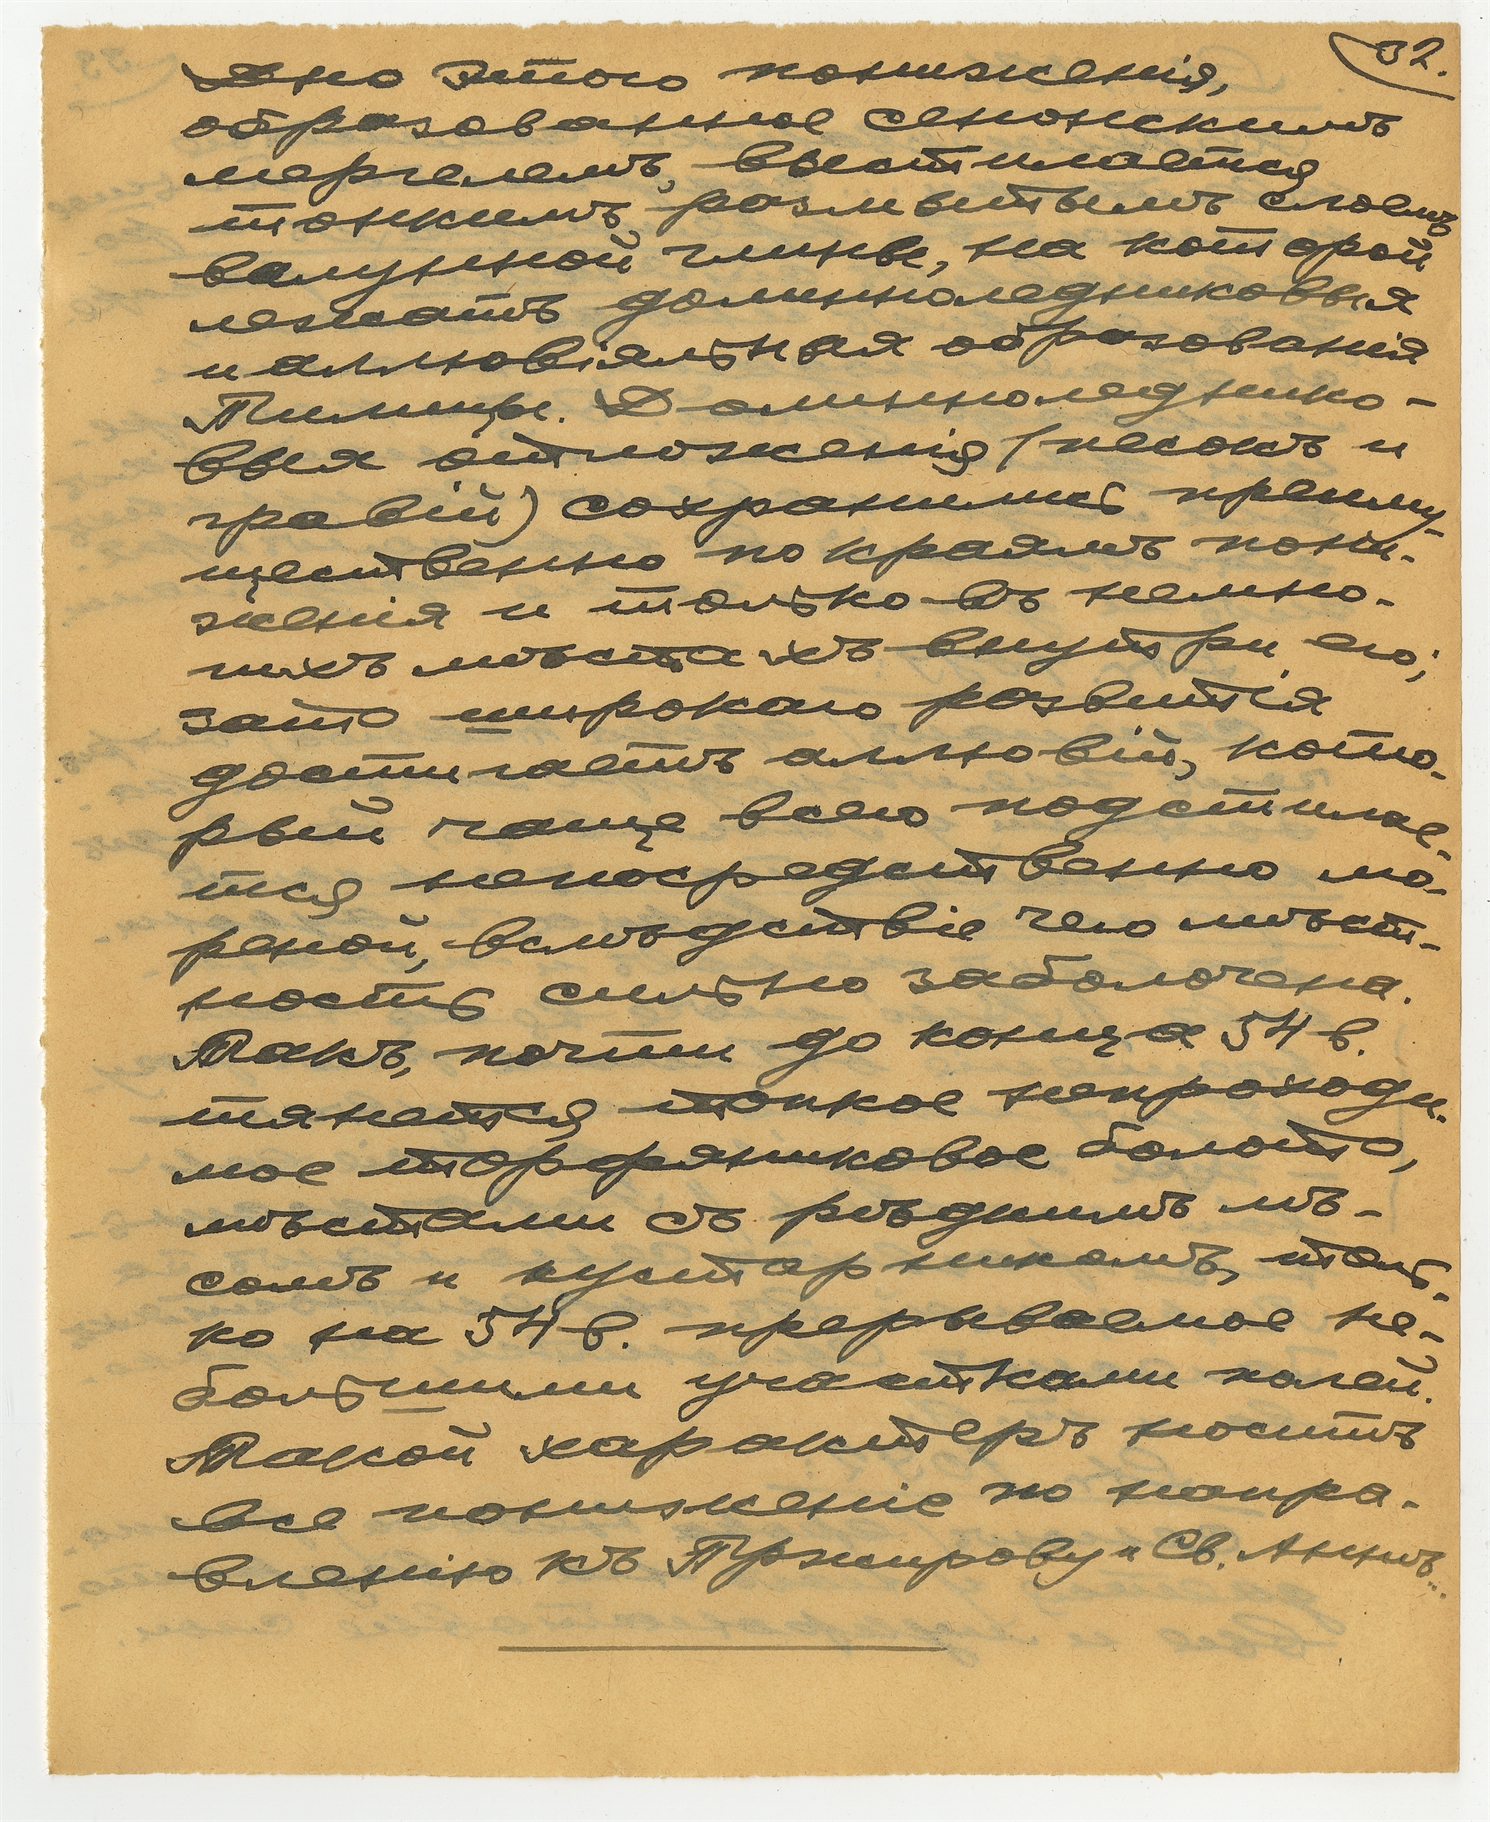 32.
Дно этого пониженія,
образованное сенонскимъ
мергелемъ, выстилается
тонкимъ, размытымъ слоемъ
валунной глины, на которой
лежатъ долинноледниковыя
и аллювіяльныя образованія
Пилицы. Долинноледнико-
выя отложенія (песокъ и
гравій) сохранились преиму-
щественно по краямъ пони-
женія и только въ немно-
гихъ мѣстахъ внутри его;
зато широкаго развитія
достигаетъ аллювій, кото-
рый чаще всего подстилае-
тся непосредственно мо-
реной, вслѣдствіе чего мѣст-
ность сильно заболочена.
Такъ, почти до конца 54 в.
тянется топкое непроходи-
мое торфяниковое болото,
мѣстами съ рѣдкимъ лѣ-
сомъ и кустарникомъ, толь-
ко на 54 в. прерываемое не-
большими участками полей.
Такой характеръ носитъ
все пониженіе по напра-
вленію къ Пржирову и Св. Аннѣ...